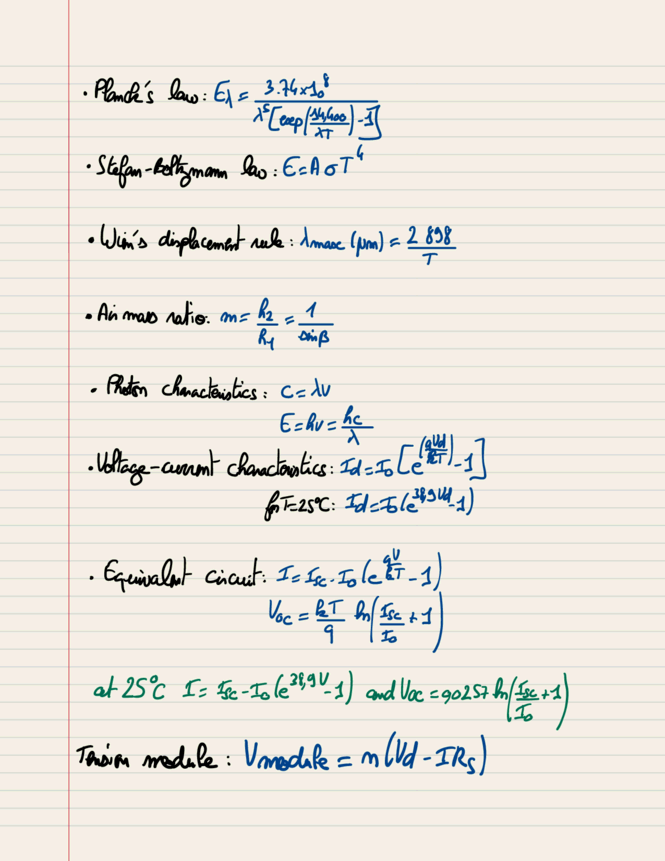 • Planck's law: Eλ = 3.74×10⁸ / λ⁵[exp(14400/λT) - 1]
• Stefan-Boltzmann law: E = A σ T⁴
• Wien's displacement rule: λmax (μm) = 2 898 / T
• Air mass ratio: m = h₂/h₁ = 1/sinβ
• Photon characteristics: C = λν
E = hν = hc/λ
• Voltage-current characteristics: Id = I₀ [e^(qVd/kT) - 1]
for T=25°C: Id = I₀(e^38,9Vd - 1)
• Equivalent circuit: I = Isc - I₀ (e^qV/kT - 1)
Voc = kT/q ln(Isc/I₀ + 1)
at 25°C I = Isc - I₀(e^38,9V - 1) and Voc = 0,0257 ln(Isc/I₀ + 1)
Tension module: Vmodule = n(Vd - IRs)